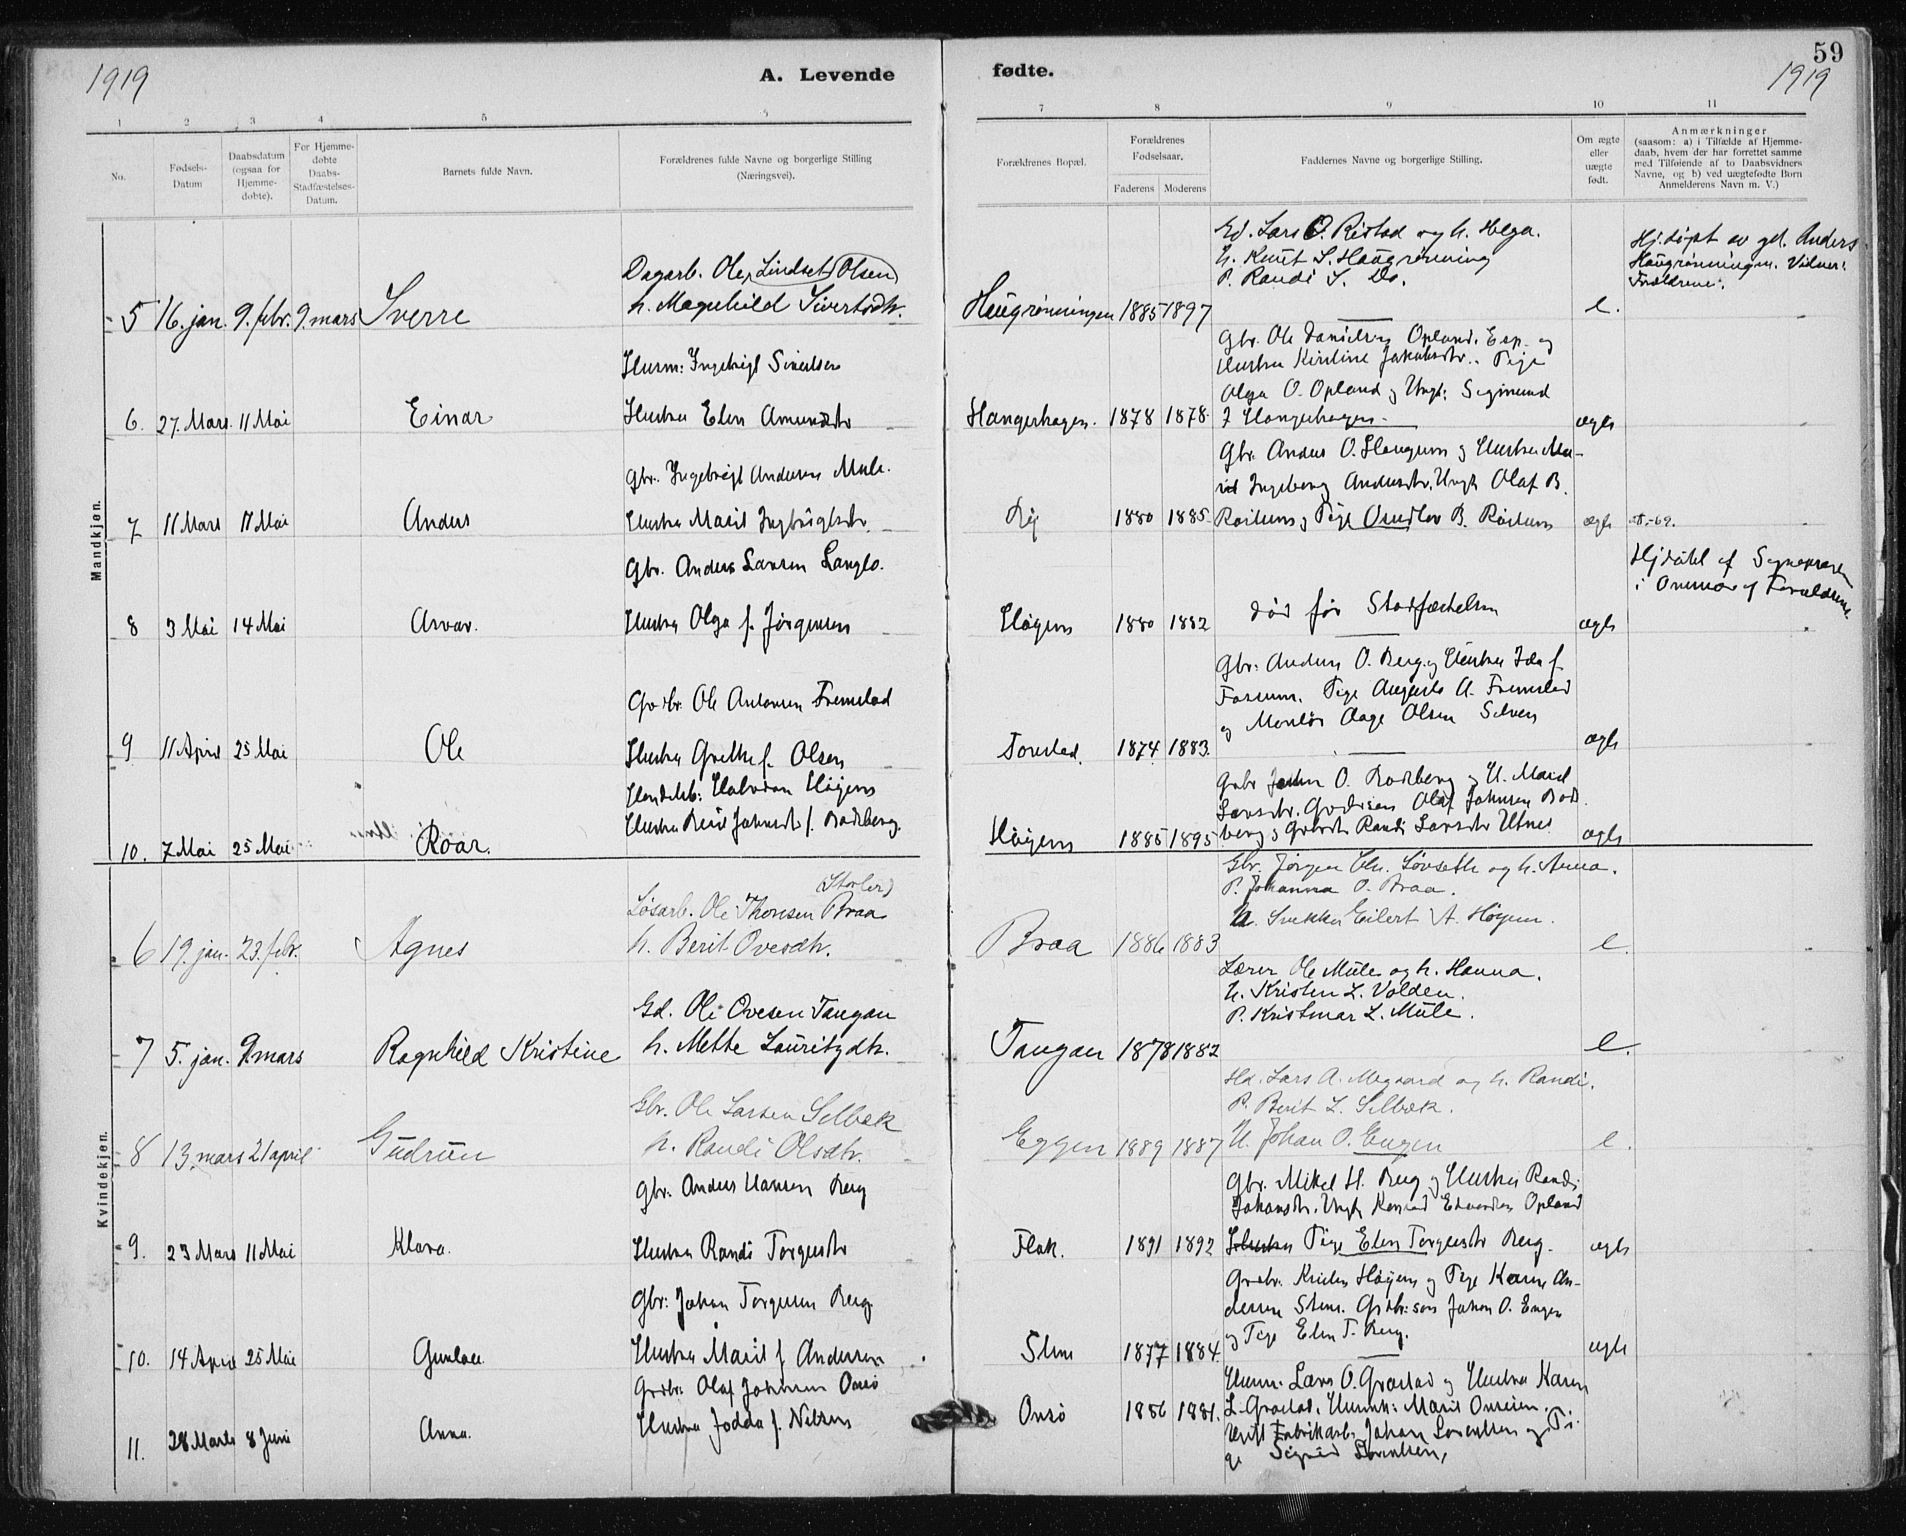 1919
A. Levende
fødte.
59
1919
1
2
3
4
5
6
7
8
9
10
11
No.
Fødsels-
Datum
Daabsdatum
(ogsaa for
Hjemme-
døbte).
For Hjemme-
døbte
Daabs-
Stadfæstelses-
Datum.
Barnets fulde Navn.
Forældrenes fulde Navne og borgerlige Stilling
(Næringsvei).
Forældrenes Bopæl.
Forældrenes
Fødselsaar.
Faderens
Moderens
Faddernes Navne og borgerlige Stilling.
Om ægte
eller
uægte
født.
Anmærkninger
(saasom: a) i Tilfælde af Hjemme-
daab, hvem der har forrettet samme
med Tilføiende af to Daabsvidners
Navne, og b) ved uægtefødte Børn
Anmelderens Navn m. V.)
Mandkjøn.
5 16. jan. 9. febr. 9. mars Sverre
Dagarb. Ole Lindset (Olsen)
h. Magnhild Sivertsdtr.
Haugrønningen 1885 1897
Gd. Lars O. Ristad og h. Helga.
U. Knut S. Haugrønning
P. Randi S. Do.
e.
Hj.døpt av gd. Anders
Haugrønningen. Vidner:
Forældrene.
6. 27. Mars. 11 Mai Einar
Husm: Ingebrigt Sivertsen
Hustru Elen Amundsdtr
Hangerhagen. 1878 1878.
Gbr. Ole Danielsen Opland. Esp. og
Hustru Kirstine Jakobsdtr. Pige
Olga O. Opland og Ungk: Sigmund
J Hangerhagen
ægte
7 11 Mars 11 Mai Anders
Gbr. Ingebrigt Andersen Mule.
Hustru Marit Ingbrigtsdtr.
1880 1885.
Gbr. Anders O. Haugum og Hustru Ma-
rit Ingeborg Andersdtr. Ungk Olaf B.
Rødum og Pige B. Rødum
ægte
8 3 Mai 14 Mai Arvar.
Gbr. Anders Larsen Langlo.
Hustru Olga f. Jørgensen
Høgem 1880 1882
død før Stadfæstelsen
ægte
Hj.døbt af
i Overvær af Forældrene
9 11 April 25 Mai Ole
Gardbr. Ole Antonsen Fremstad
Hustru Grethe f. Olsen
1874 1883.
Gbr: Anders O. Berg og Hustru Ida f.
Forsum. Pige Augusta A. Fremstad
og Montør Aage Olsen Selven
ægte
10. 7 Mai 25 Mai Roar.
Handelsb: Halvdan Høgem
Hustru Johnsdtr f. Rodsberg.
Høgem 1885 1895
Gbr John O. Rodsberg og H. Marit
Larsdtr. Olaf Johnsen Rods-
berg og Randi Larsdtr Utnes
ægte
Kvindekjøn.
6 19. jan. 23. febr. Agnes
(Storler)
Løsarb. Ole Thomsen Braa
h. Berit Ovesdtr.
Braa 1886 1883
Gbr. Jørgen Chr. Løvseth og h. Anna.
P. Johanna O. Braa.
U. Snekker Eilert A. Høgem.
e.
7 5. jan. 9. mars Ragnhild Kristine
Gd. Ole Ovesen Tangan
h. Mette Lauritzdtr.
Tangan 1878 1882
Lærer Ole Mule og h. Hanna.
U. Kristen L. Volden.
P. Kristmar L. Mule.
e.
8 13. mars 21 april Gudrun
Gbr. Ole Larsen Selbæk
h. Randi Olsdtr.
Eggen 1889 1887
Hd. Lars A. Megaard og h. Randi.
P. Berit L. Selbæk.
U. Johan O. Engen
e.
9. 23 Mars 11 Mai Klara.
Gbr: Anders Hansen Berg
Hustru Randi Torgersdtr
Flak. 1891 1892
Gbr. Mikal H. Berg og Hustru Randi
Johansdtr. Ungk Konrad Edvardsen Opland
Hustru Pige Elen Torgersdtr Berg.
ægte
10. 14 April 25 Mai
Gbr: Johan Torgersen Berg.
Hustru Marit f. Andersen
Stene 1877 1884.
Gardbr. Kristen Høgem og Pige Karen An-
dersen Stene. Gardbr:søn Johan O. Engen
og Pige Elen T. Berg.
ægte
11. 28 Mars 8 Juni Anna.
Gardbr: Olaf Johnsen Onsø
Hustru Jodda f. Nilsen
Onsø 1886 1881.
Husm: Lars O. Grøstad og Hustru Karen
L. Grøstad. Marit
Ugift Fabrikarb. Johan Lorentsen og Pi-
ge Sigrid Lorentsen.